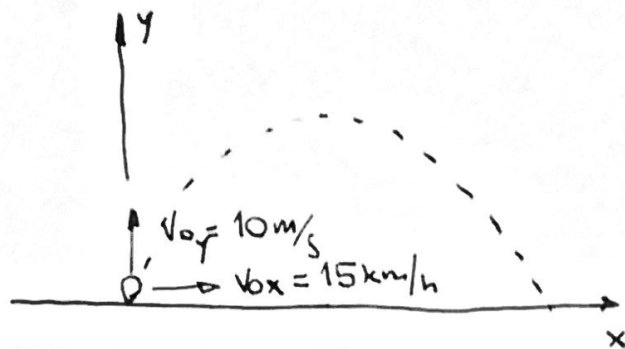 y
V₀y = 10 m/s
V₀x = 15 km/h
x